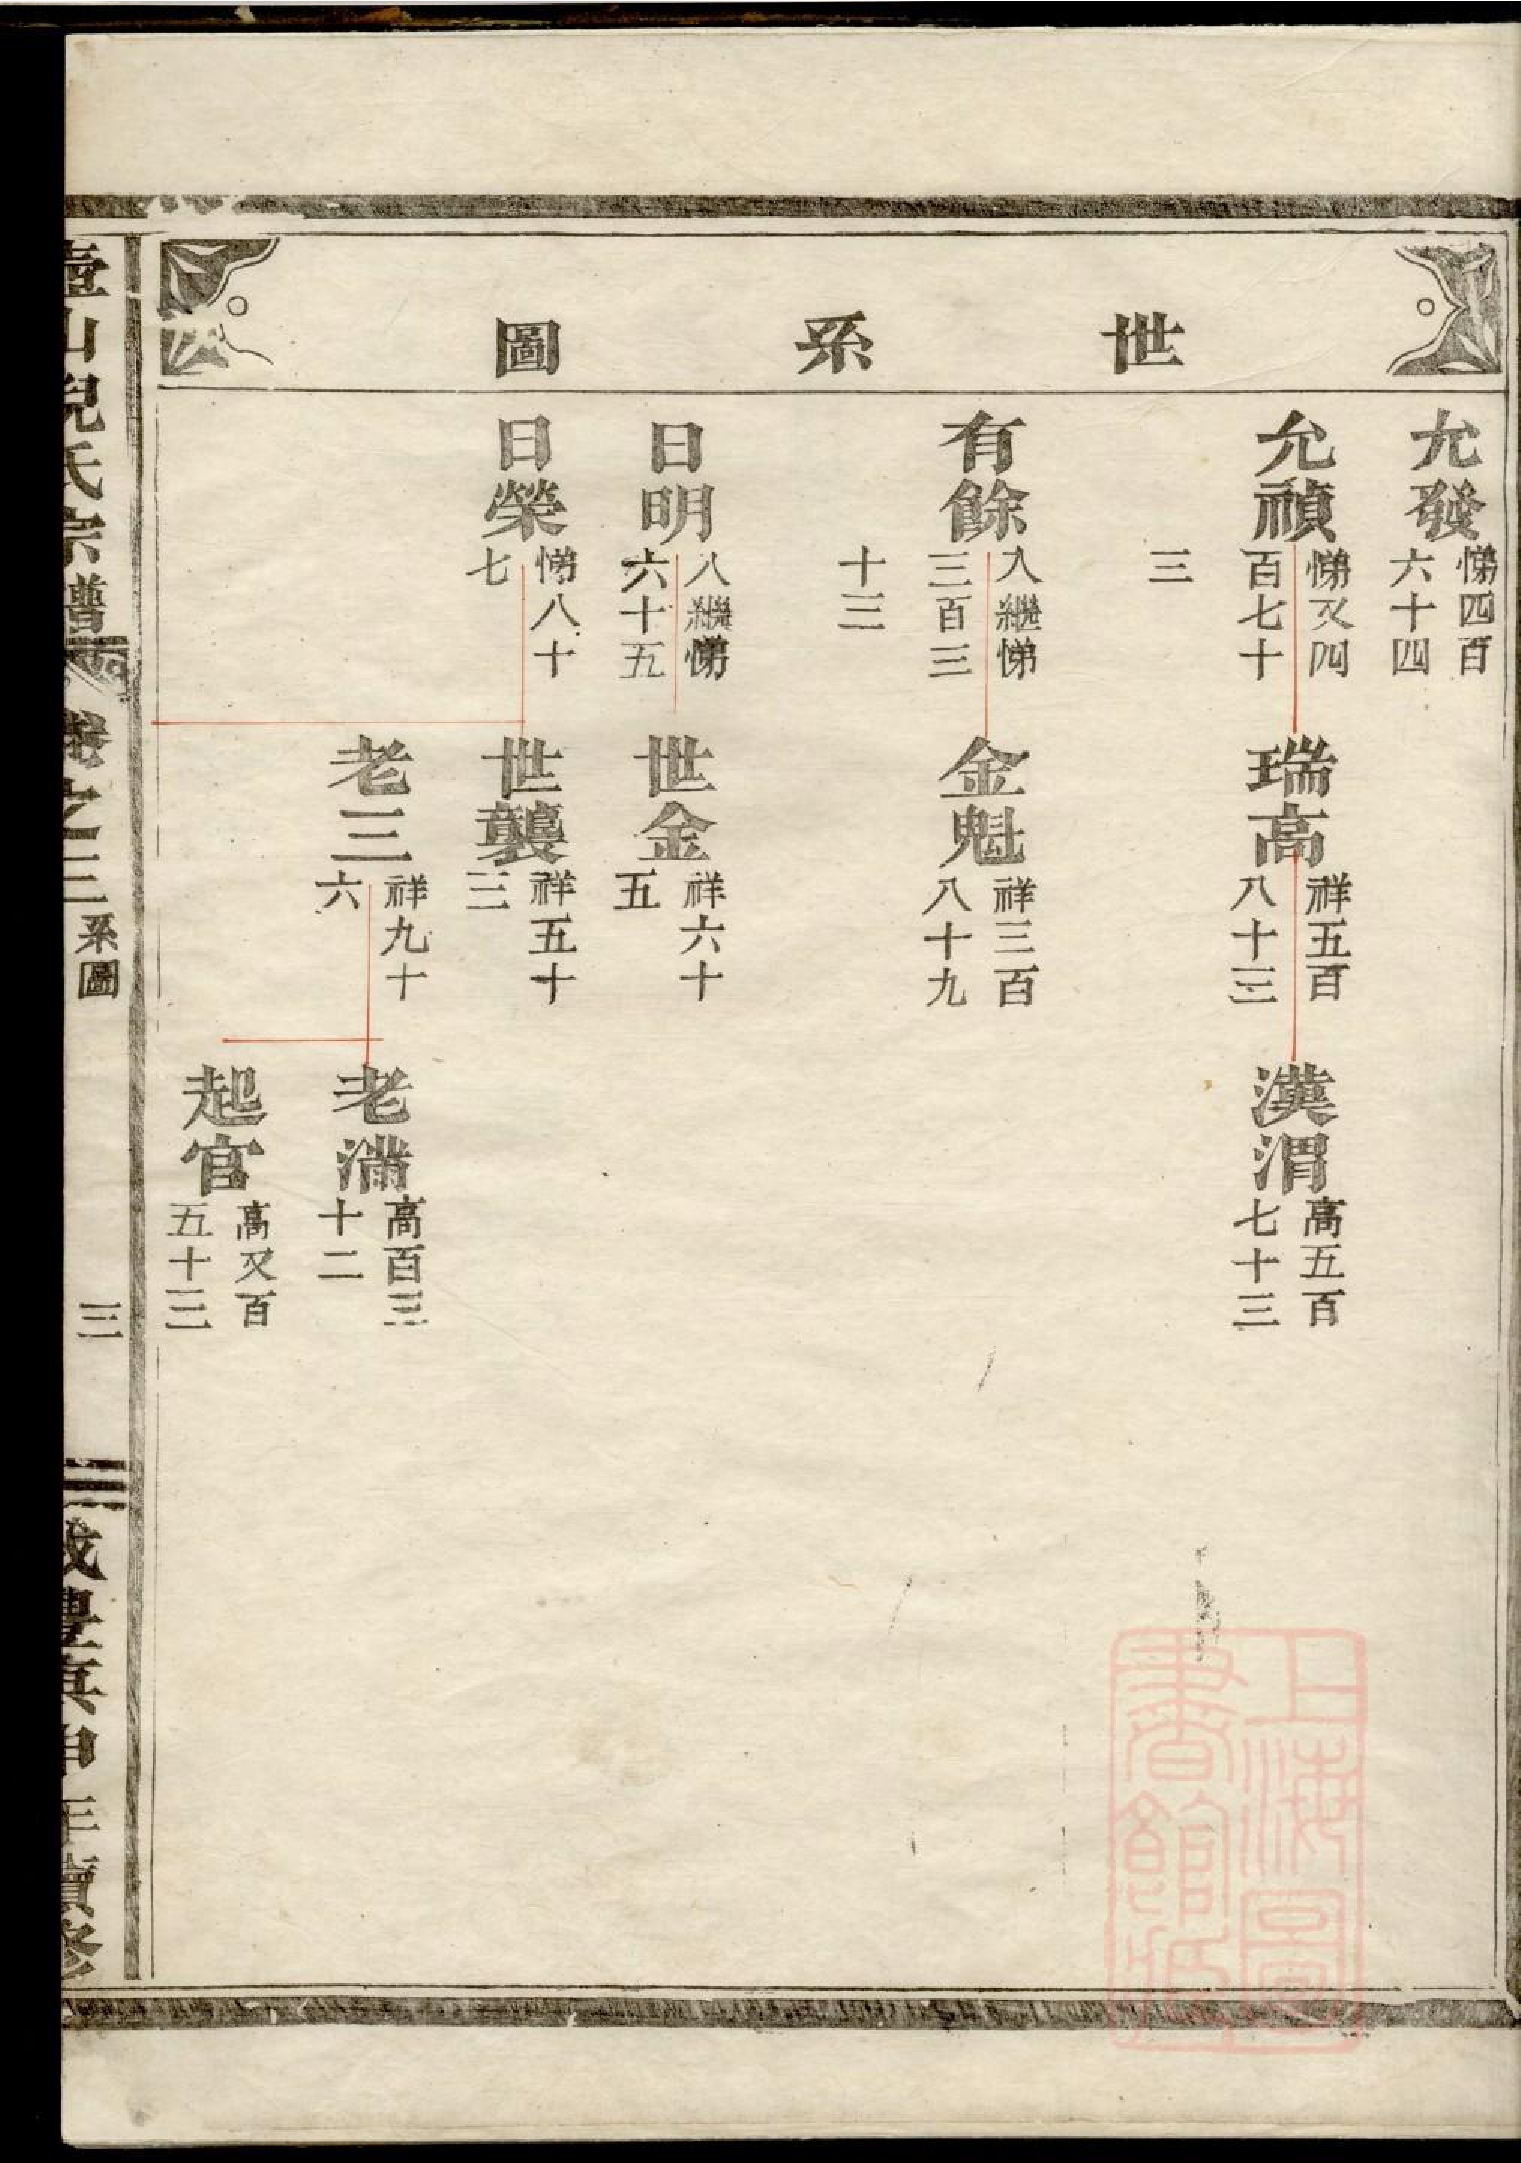 世系圖
允發
悌四百
六十四
允禎
悌又四
百七十
三
有餘
入繼悌
三百三
十三
日明
入繼悌
六十五
日榮
悌八十
七
瑞高
祥五百
八十三
金魁
祥三百
八十九
世金
祥六十
五
世襲
祥五十
三
老三
祥九十
六
漢渭
高五百
七十三
老滿
高百三
十二
起官
高又百
五十三
壺山倪氏宗譜
卷之三
系圖
三
咸豐庚申年續修
上海圖
書館藏